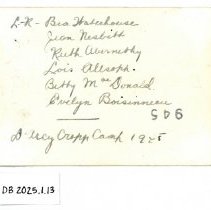 L-R- Bea Waterhouse
Jean Nesbitt
Ruth Abernethy
Lois Allsoph.
Betty Mac Donald
Evelyn Boisinneau
945
D'Arcy Cropp Camp 1925
DB 2025.1.13